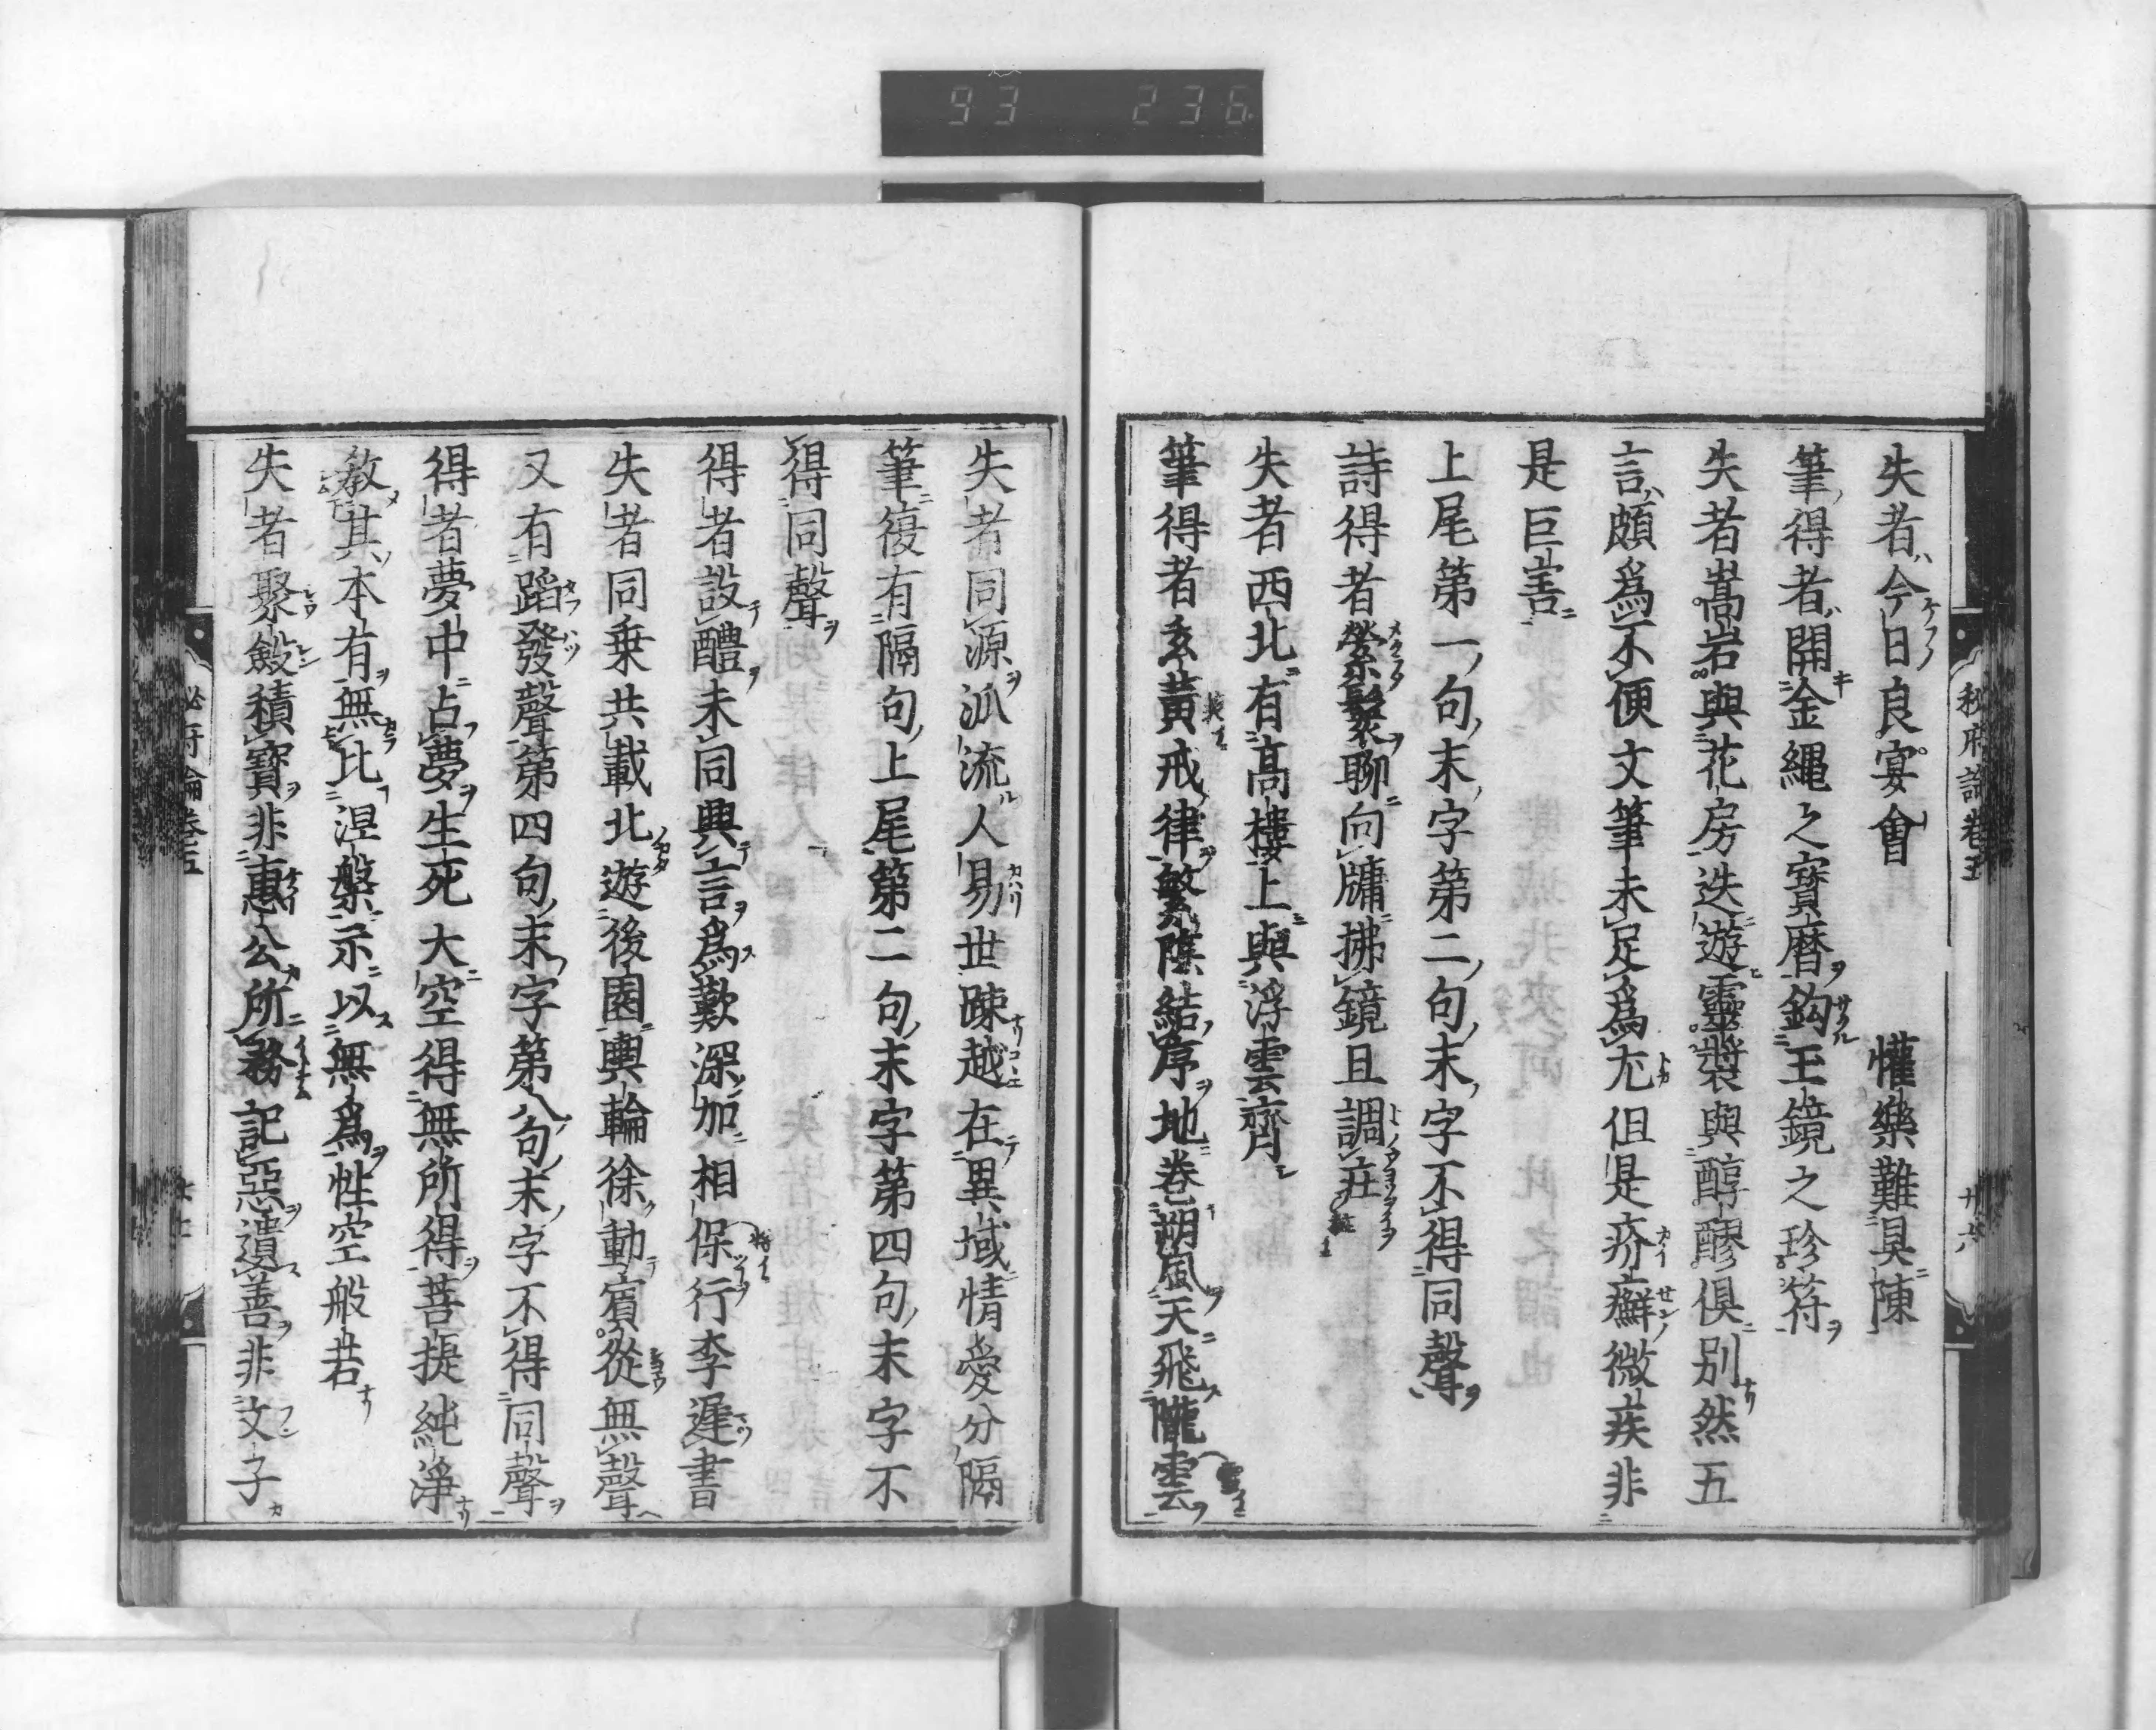 93 236
秘府論卷五 廿六
失者今日良宴會 懽樂難具陳
筆得者開金繩之寶曆鈎玉鏡之珍符
失者嵩岩與花房迭遊靈漿與醇醪俱別然五
言頗爲不便文筆未足爲尤但是疥癬微疾非
是巨害
上尾第一句末字第二句末字不得同聲
詩得者縈鬟聊向牖拂鏡且調莊
失者西北有高樓上與浮雲齊
筆得者玄黃戒律繁陰結序地卷朔風天飛隴雲
失者同源泒流人易世踈越在異域情愛分隔
筆復有隔句上尾第二句末字第四句末字不
得同聲
得者設醴未同興言爲歎深加相保行李遲書
失者同乗共載北遊後園輿輪徐動賔從無聲
又有蹈發聲第四句末字第八句末字不得同聲
得者夢中占夢生死大空得無所得菩提純淨
教其本有無比涅槃示以無爲性空般若
失者聚斂積寶非惠公所務記惡遺善非文子
秘府論卷五